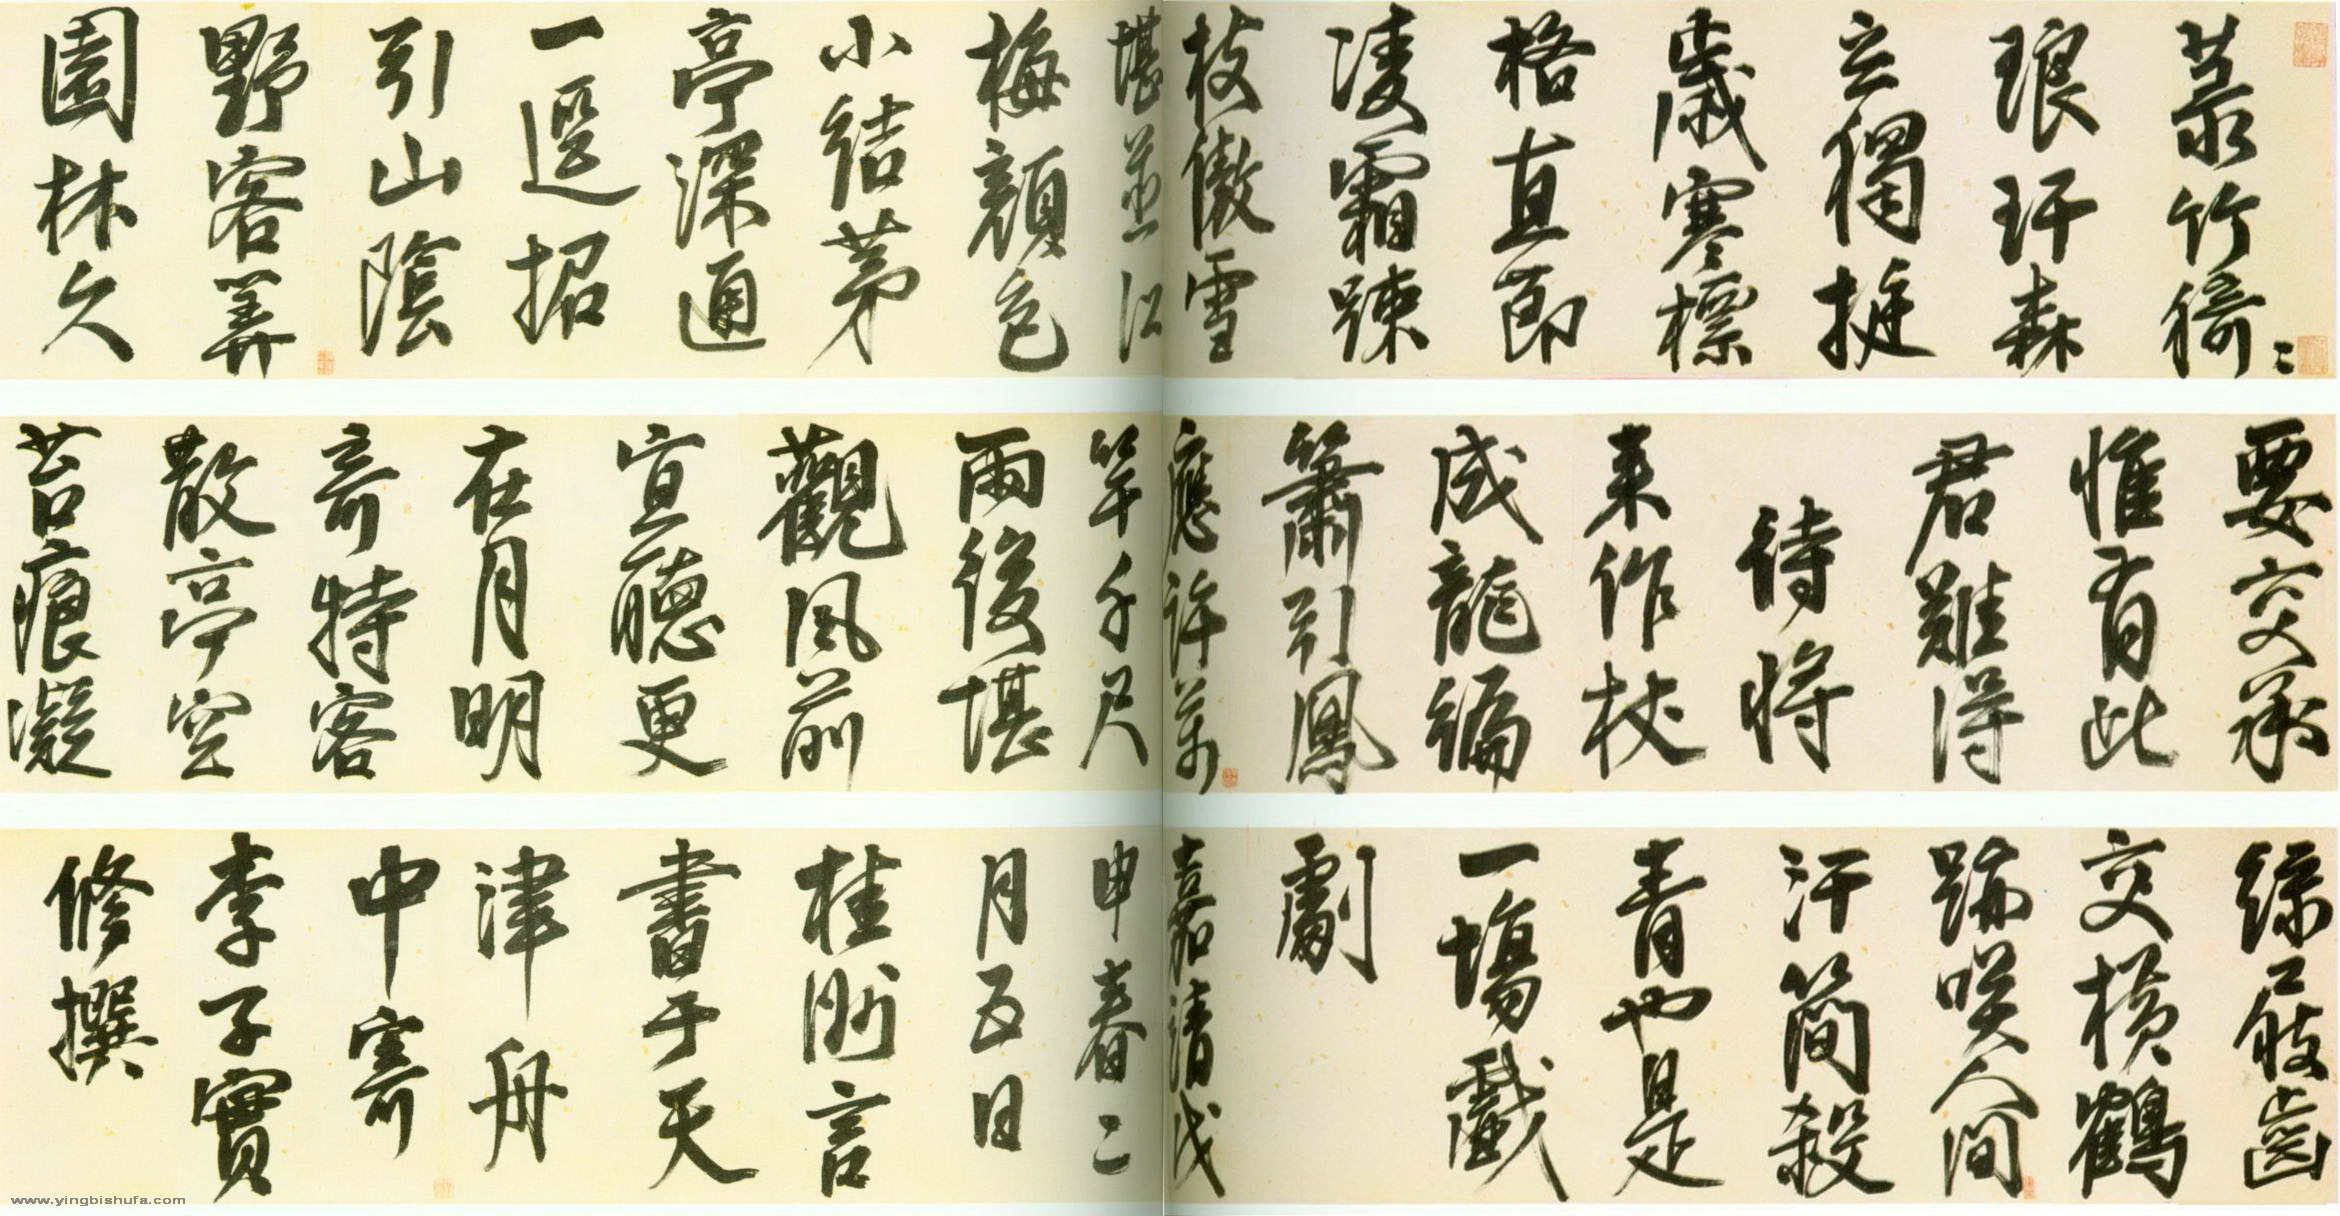 菉竹猗〻
琅玕森
立獨挺
歲寒標
格直節
凌霜踈
枝傲雪
堪並江
梅顔色
小結茅
亭深通
一逕招
引山陰
野客筭
園林久
要交承
惟有此
君難得
待將
来作杖
成龍編
簫引鳳
應許萬
竿千尺
雨後堪
觀風前
宜聽更
在月明
奇特客
散亭空
苔痕凝
綠屐齒
交橫鶴
跡咲人間
汗簡殺
青也是
一場戲
劇
嘉靖戊
申春二
月五日
桂洲言
書于天
津舟
中寄
李子實
修撰
www.yingbishufa.com